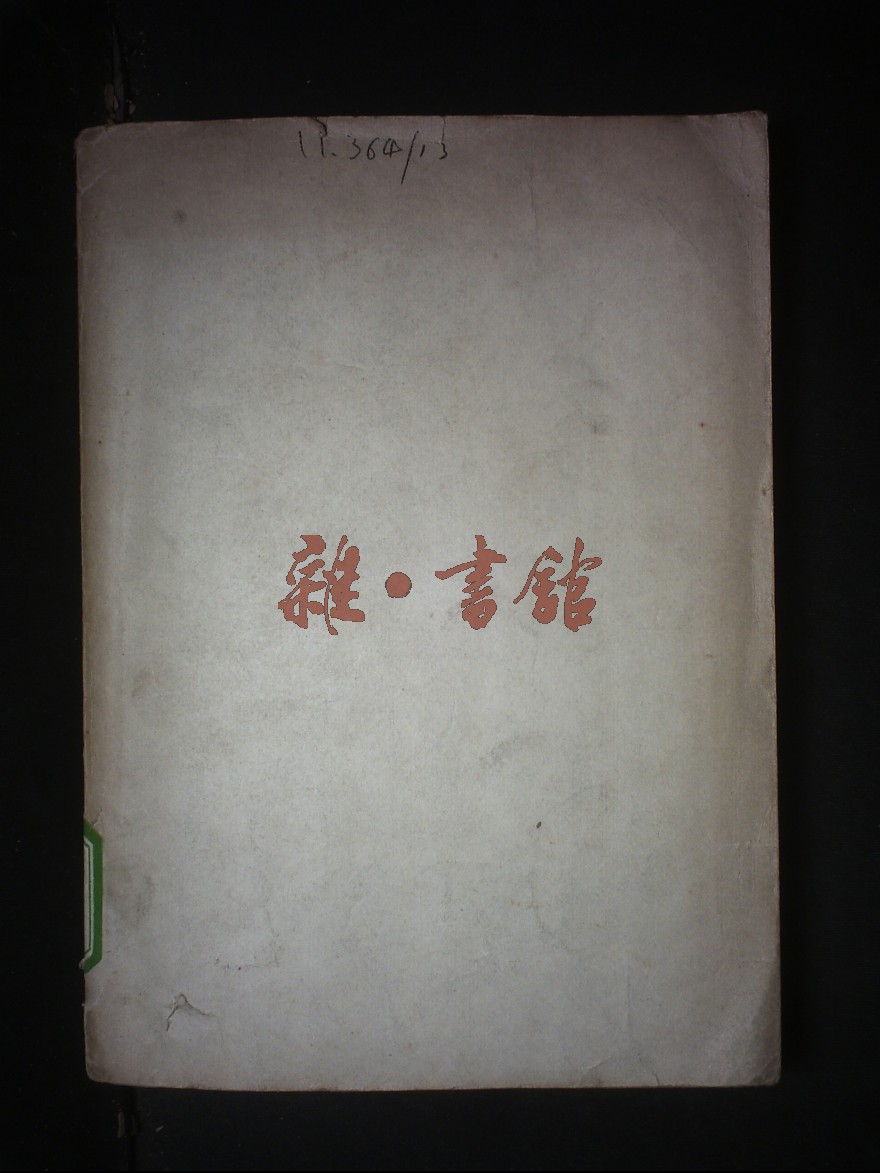 11.364/13
雜·書館